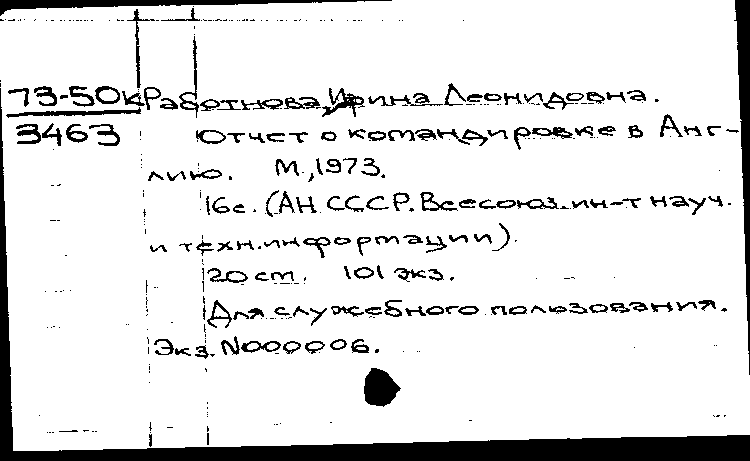 73-50к Работнова, Ирина Леонидовна.
3463 Отчет о командировке в Анг-
лию. М., 1973.
16с. (АН СССР. Всесоюз. ин-т науч.
и техн. информации).
20 ст. 101 экз.
Для служебного пользования.
Экз. N000006.